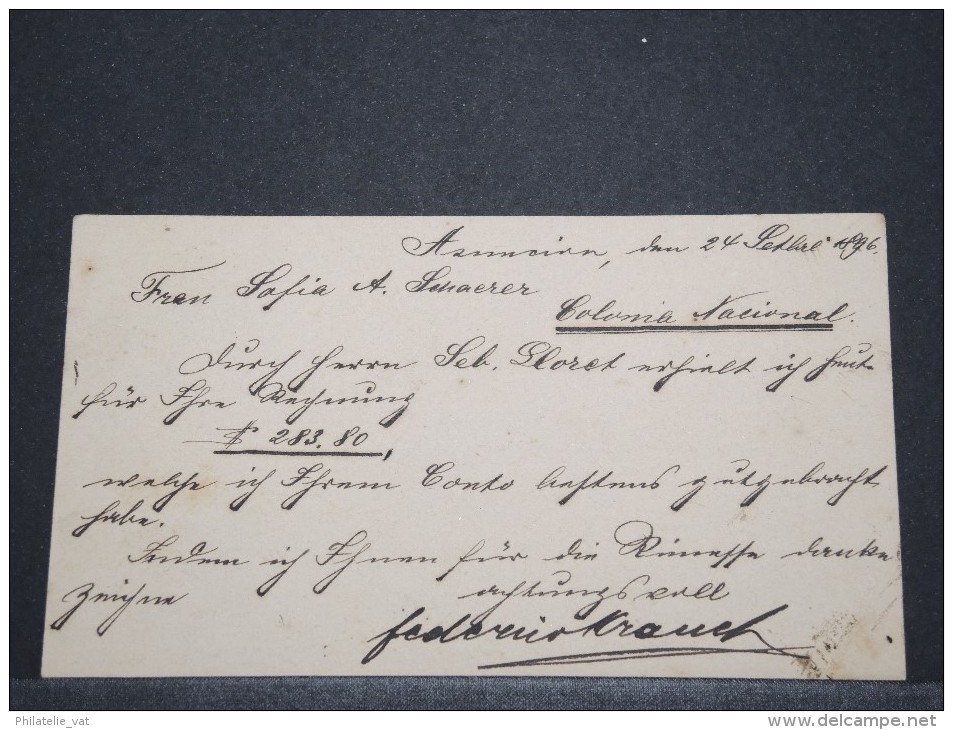 Asuncion, den 24 Setbre 1896.
Frau Sofia A. Schaerer
Colonia Nacional.
Durch Herrn Seb. Lloret erhielt ich heute
für Ihre Rechnung
$ 283.80,
welche ich Ihrem Conto bestens gutgebracht
habe.
Indem ich Ihnen für die Rimesse danke
zeichne achtungsvoll
Federico Krauch
Philatelie_vat
www.delcampe.net